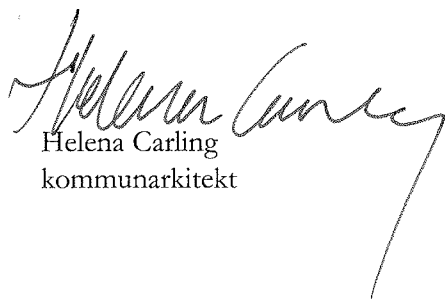 Helena Carling
Helena Carling
kommunarkitekt